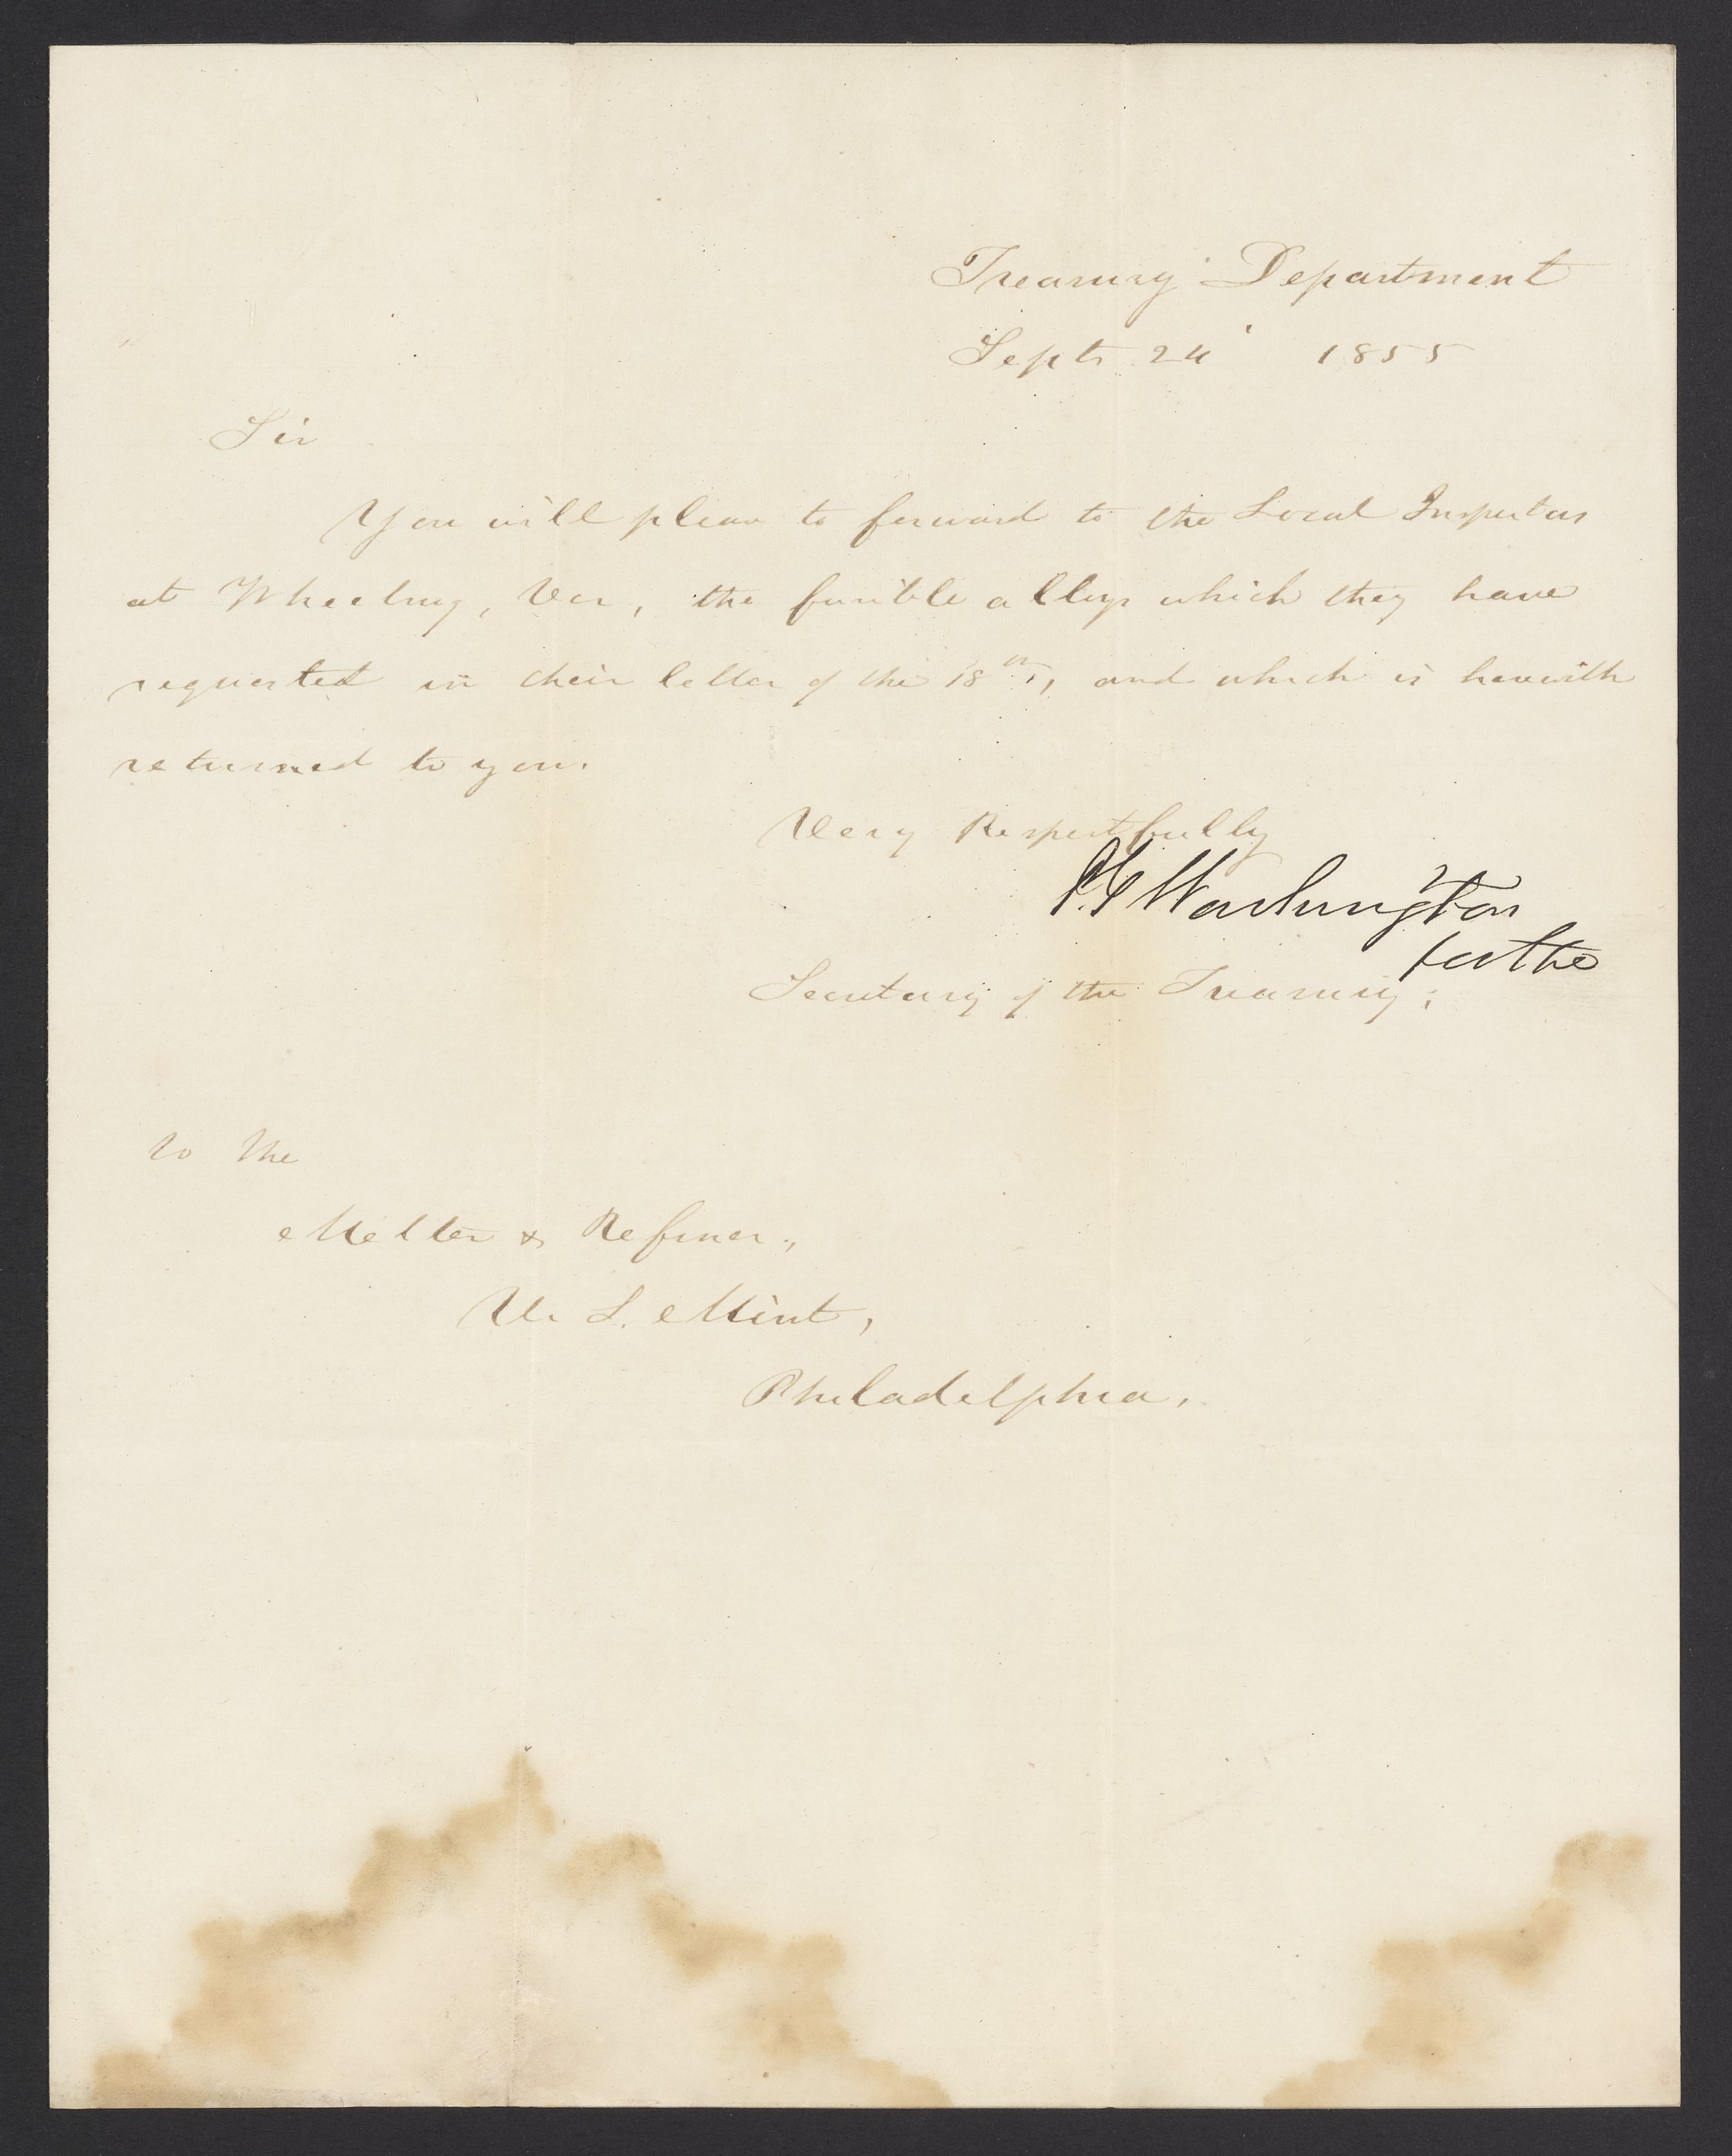 Treasury Department
Sept 24 1855
Sir
You will please to forward to the Local Inspectors
at Wheeling, Va, the fusible alloys which they have
requested in their letter of the 18th, and which is herewith
returned to you.
Very Respectfully
P. G. Washington
for the
Secretary of the Treasury.
To the
Melter & Refiner,
U. S. Mint,
Philadelphia.